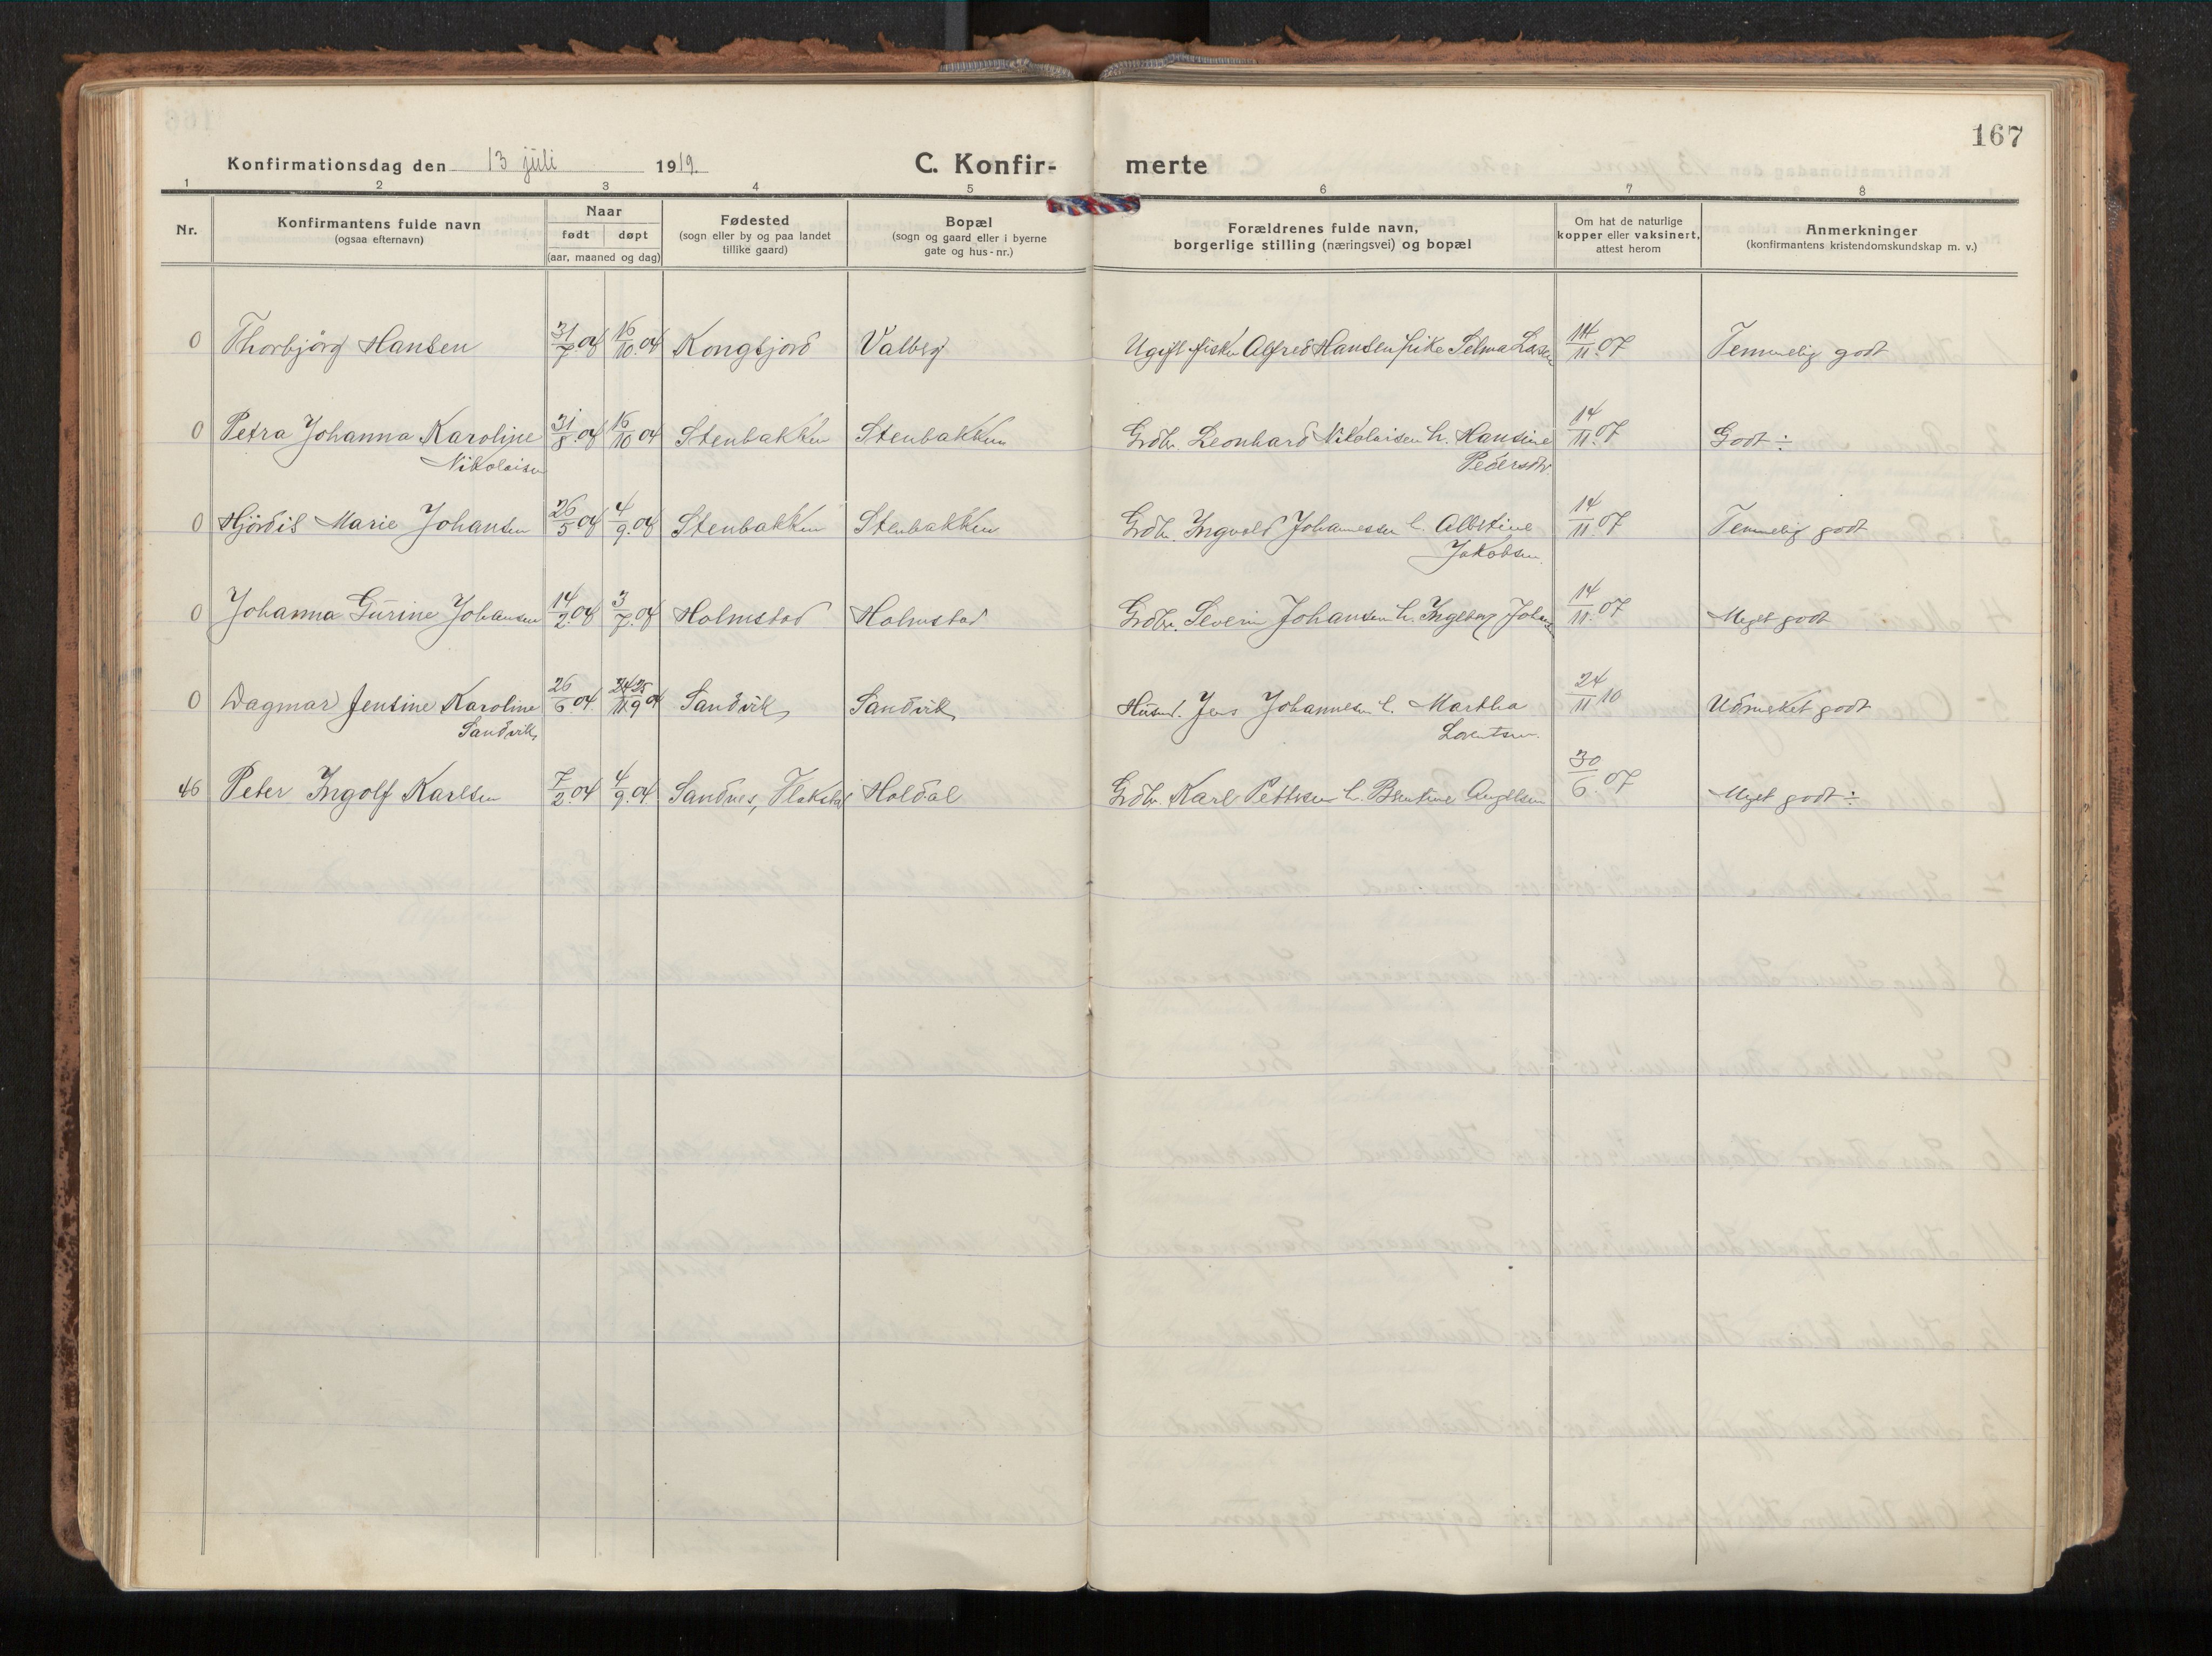 167
Konfirmationsdag den 13 juli 1919.
C. Konfirmerte
1 2 3 4 5 6 7 8
Nr.
Konfirmantens fulde navn
(ogsaa efternavn)
Naar
født døpt
(aar, maaned og dag)
Fødested
(sogn eller by og paa landet
tillike gaard)
Bopæl
(sogn og gaard eller i byerne
gate og hus-nr.)
Forældrenes fulde navn,
borgerlige stilling (næringsvei) og bopæl
Om hat de naturlige
kopper eller vaksinert,
attest herom
Anmerkninger
(konfirmantens kristendomskundskap m. v.)
0 Thorbjörg Hansen 31/7.04 16/10.04 Kongsjord Valberg Ugift fisker Alfred Hansen pike Selma Larsen 14/11.07 Temmelig godt
0 Petra Johanna Karoline 31/8.04 16/10 04 Stenbakken Stenbakken Grdbr. Leonhard Nikolaisen h. Hansine 14/11.07 Godt ÷
Nikolaisen Pedersdtr.
0 Hjördis Marie Johansen 26/5.04 4/9.04 Stenbakken Stenbakken Grdbr. Ingvald Johannessen h. Albertine 14/11.07 Temmelig godt
Jakobsen.
0 Johanna Gurine Johansen 14/2.04 3/7.04 Holmstad Holmstad Grdbr. Severin Johansen h. Ingeborg Johans 14/11.07 Meget godt
0 Dagmar Jensine Karoline 26/6.04 25/9 04 Sandvik Sandvik Husmd. Jens Johannesen h. Martha 24/11 10 Udmerket godt
Sandvik Lorentsen.
46 Peter Ingolf Karlsen 7/2.04 4/9.04 Sandnes, Flakstad Holdal Grdbr. Karl Pettersen h. Berntine Angelsen 30/6.07 Meget godt ÷